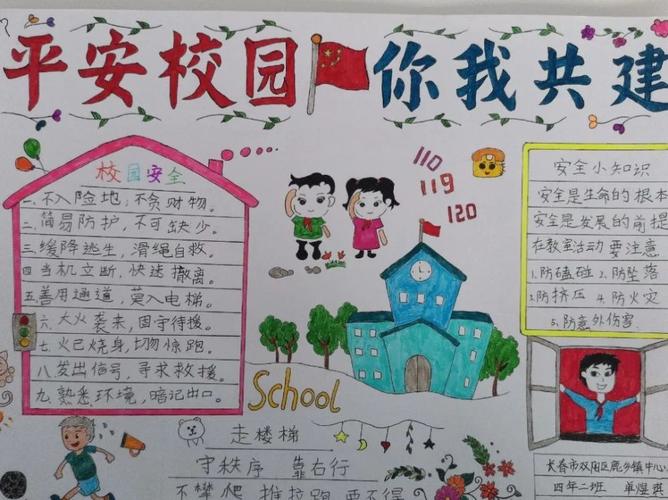 平安校园 你我共建
校园安全
一.不入险地,不贪财物。
二.简易防护,不可缺少。
三.缓降逃生,滑绳自救。
四.当机立断,快速撤离。
五.善用通道,莫入电梯。
六.大火袭来,固守待援。
七.火已烧身,切勿惊跑。
八.发出信号,寻求救援。
九.熟悉环境,暗记出口。
110
119
120
School
安全小知识
安全是生命的根本
安全是发展的前提
在教室活动要注意
1.防磕碰 2.防坠落
3防挤压 4.防火灾
5.防意外伤害
走楼梯
守秩序 靠右行
不攀爬 推拉跑 要不得
长春市双阳区鹿乡镇中心小
四年二班 单煜